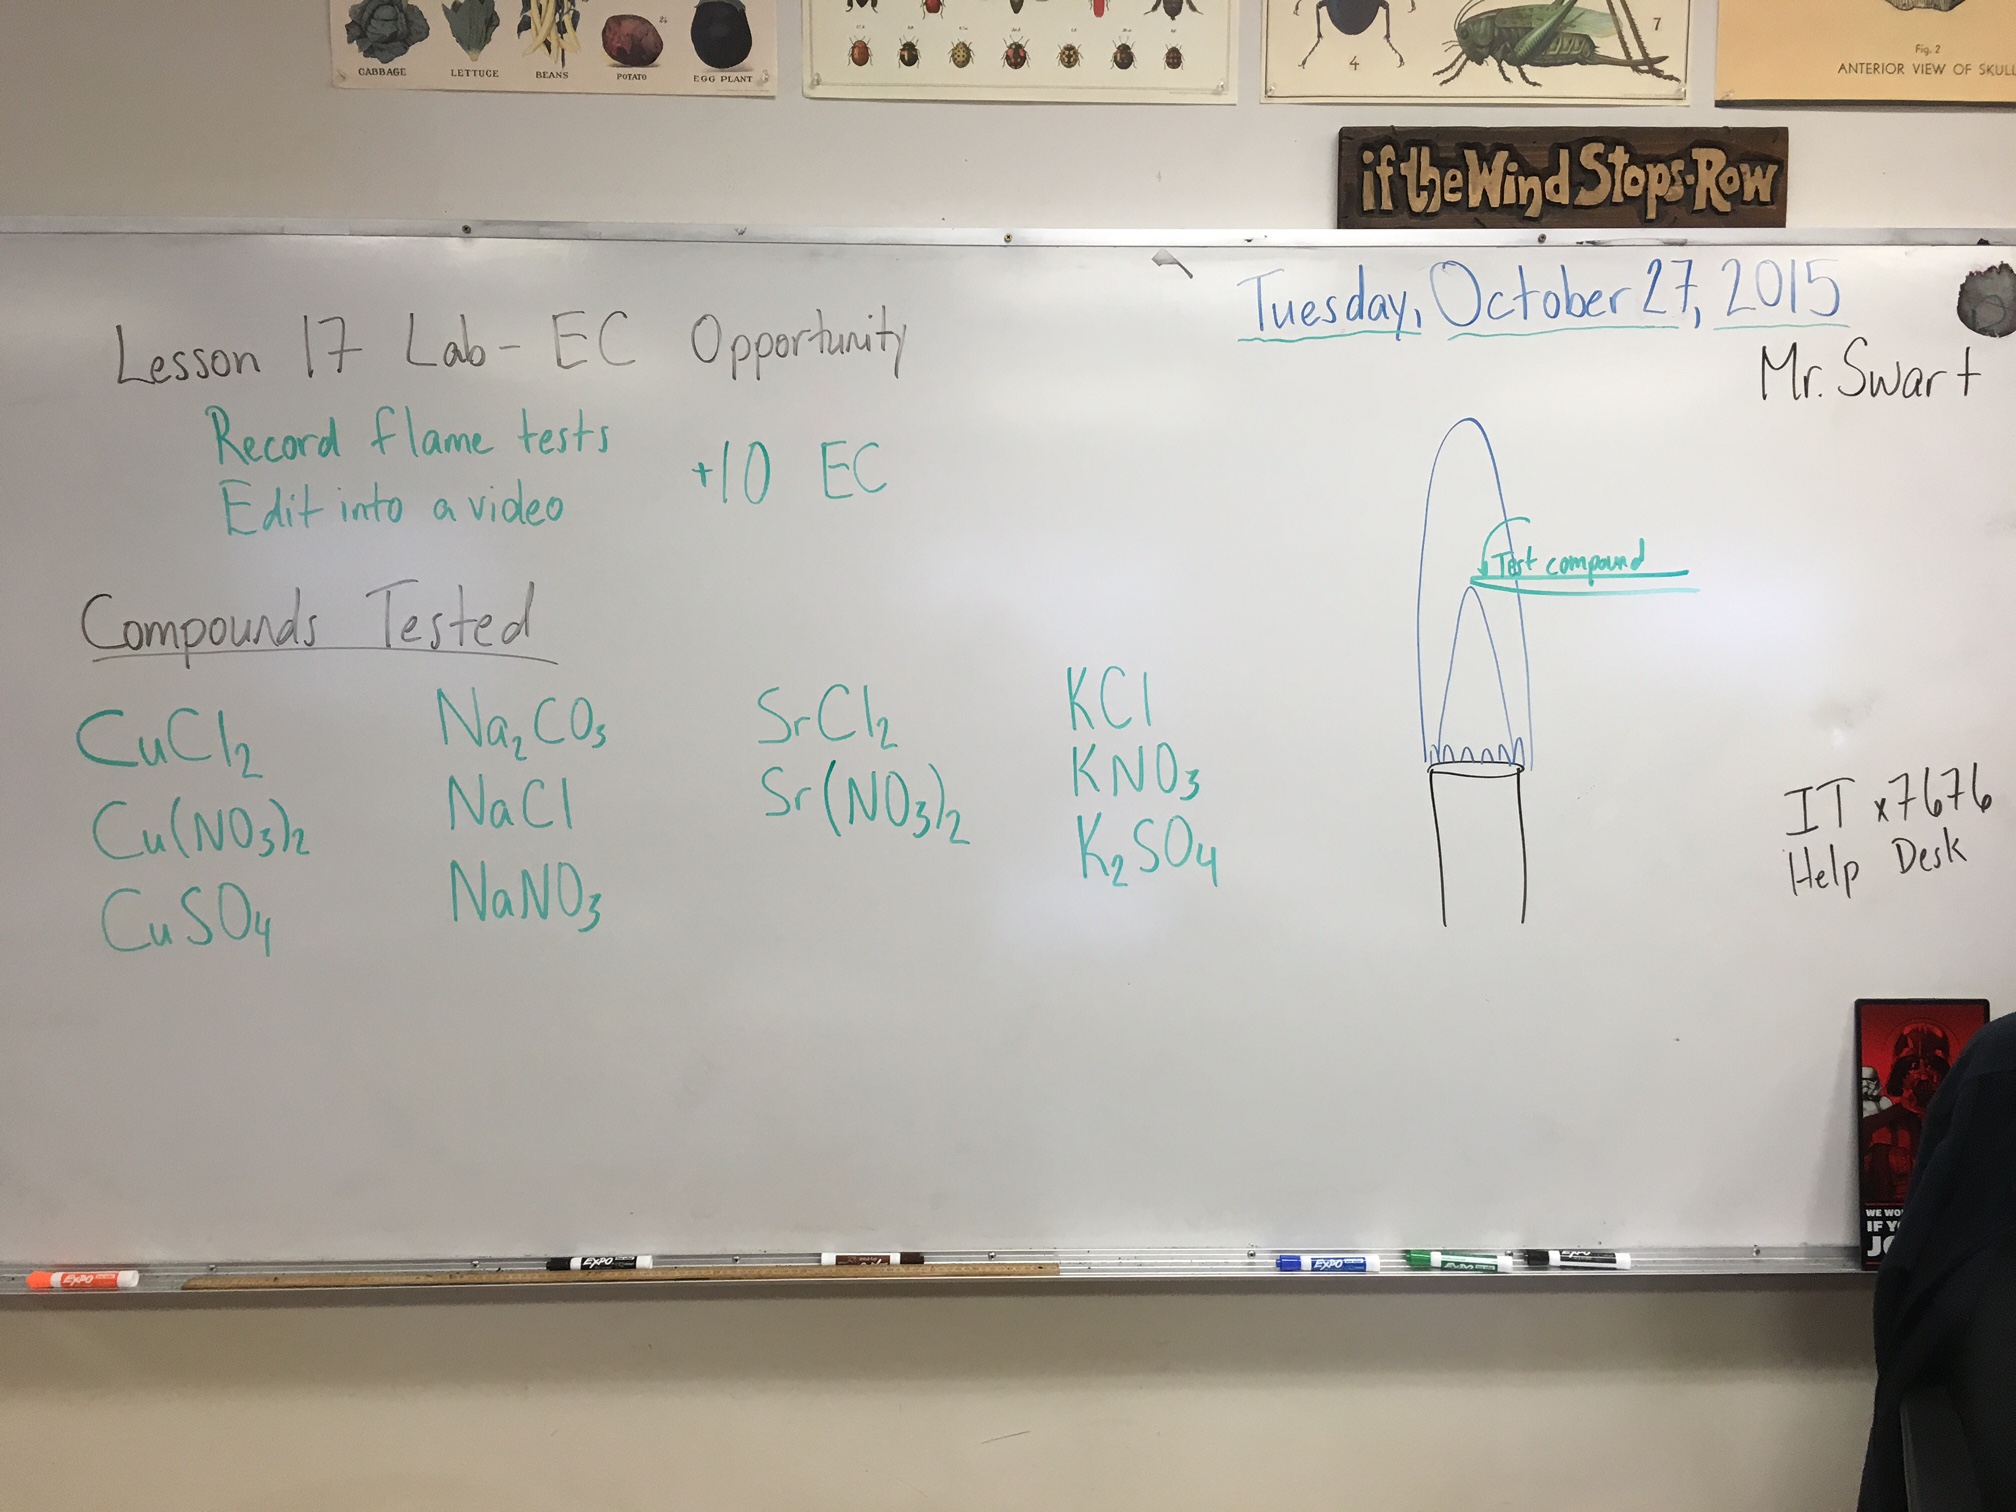 CABBAGE
LETTUCE
BEANS
POTATO
EGG PLANT
4
7
Fig. 2
ANTERIOR VIEW OF SKULL
if the Wind Stops-Row
Tuesday, October 27, 2015
Mr. Swart
Lesson 17 Lab- EC Opportunity
Record flame tests
Edit into a video
+10 EC
Test compound
Compounds Tested
CuCl₂
Cu(NO₃)₂
CuSO₄
Na₂CO₃
NaCl
NaNO₃
SrCl₂
Sr(NO₃)₂
KCl
KNO₃
K₂SO₄
IT x7676
Help Desk
WE WO
IF Y
JO
EXPO
EXPO
EXPO
EXPO
EXPO